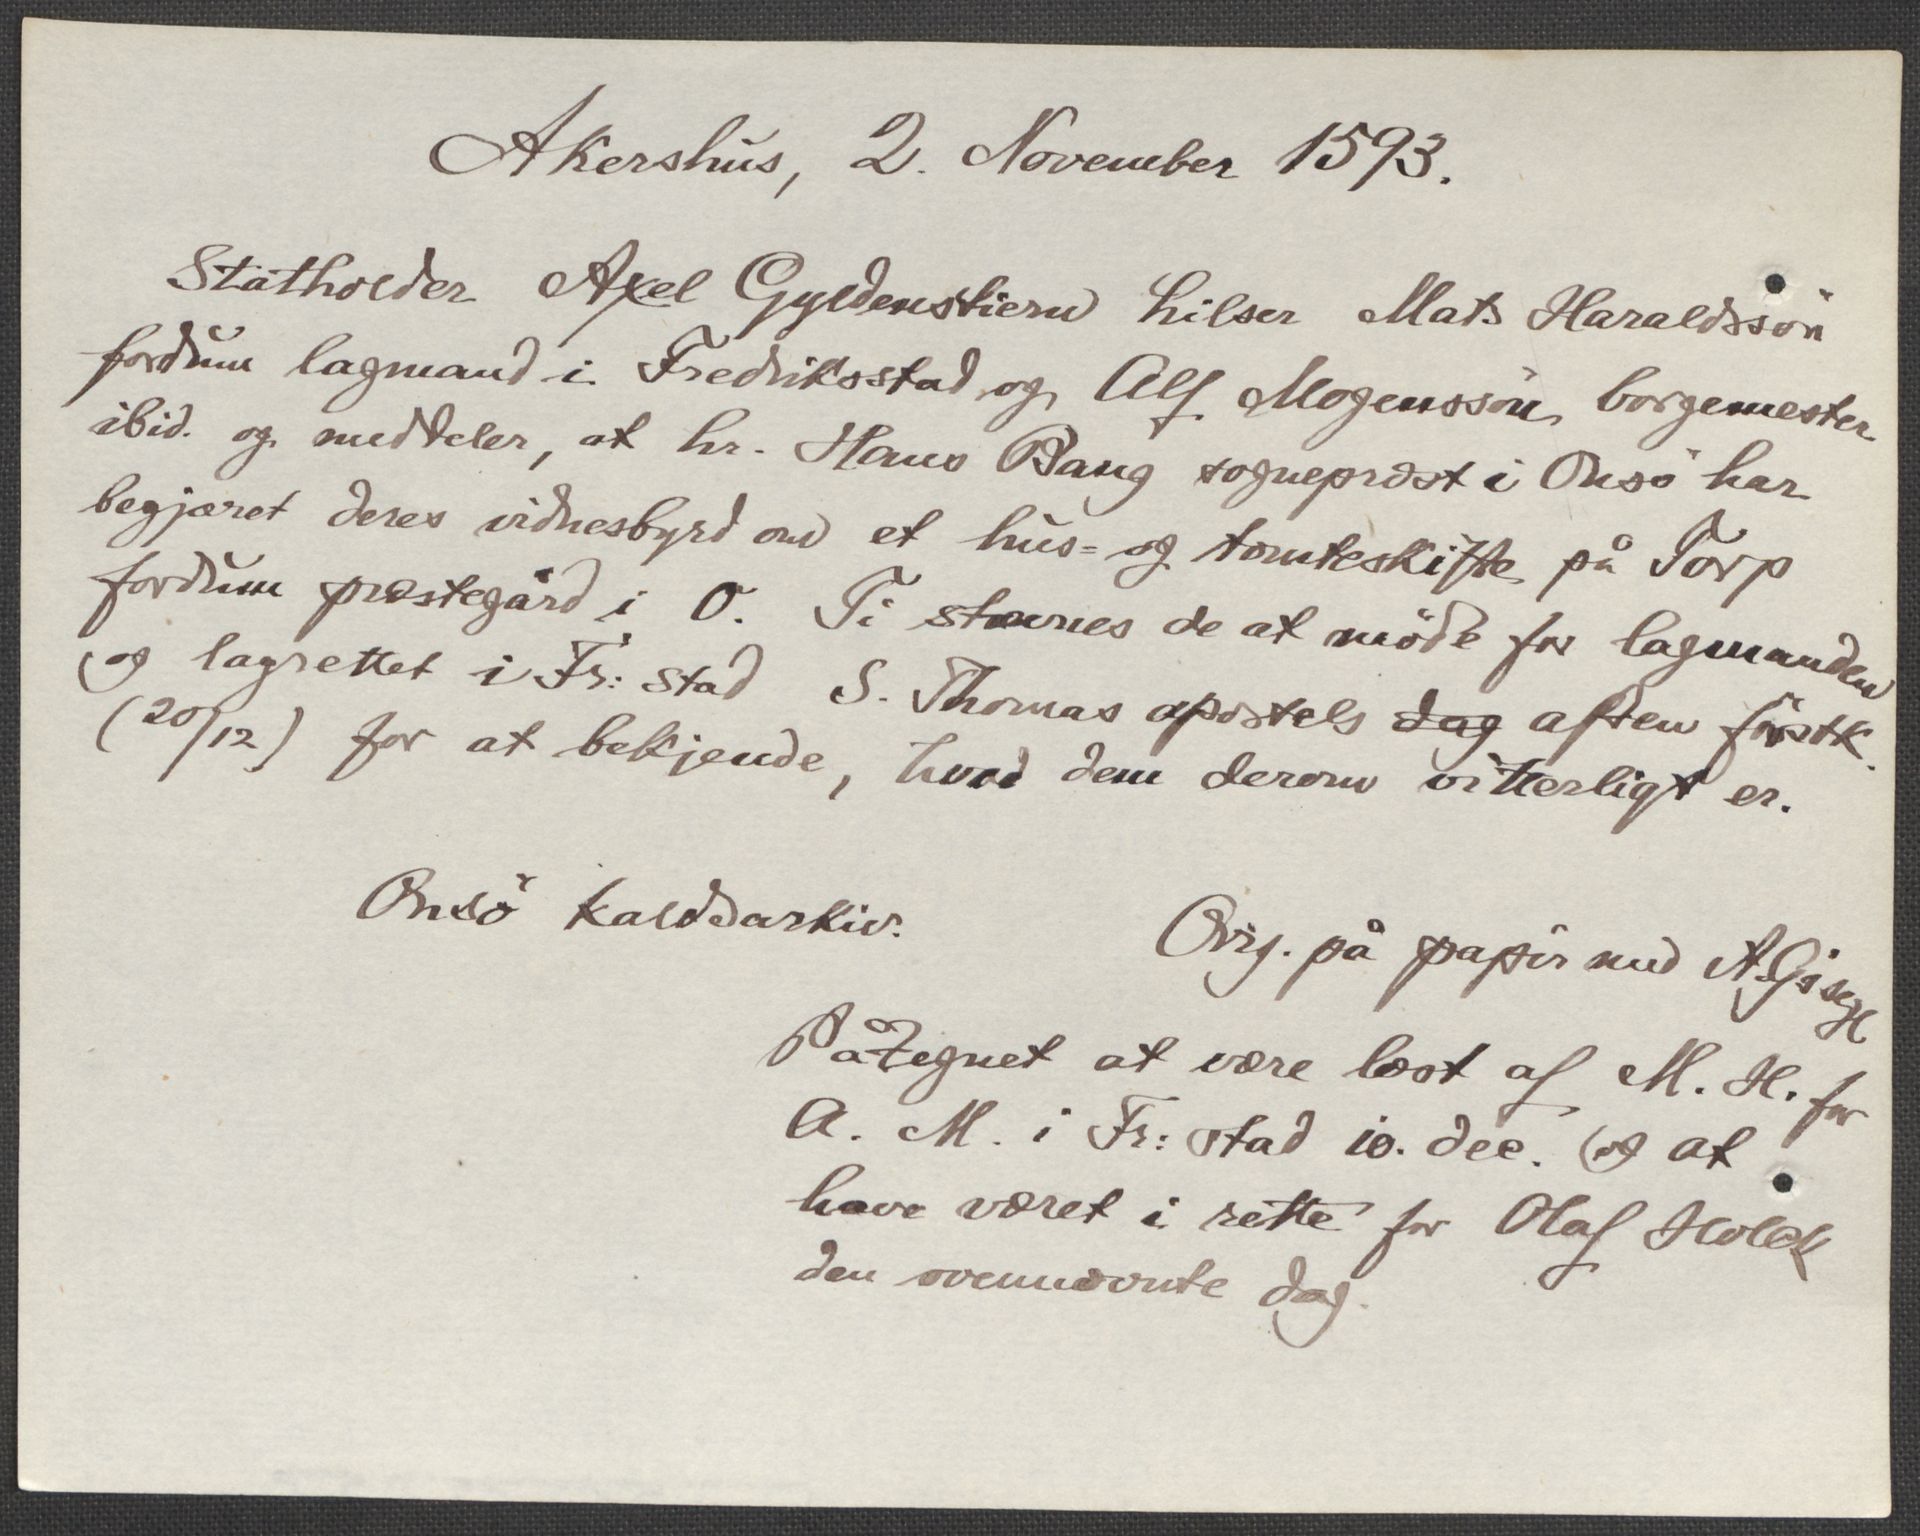 Akershus, 2. November 1593.
Statholder Axel Gyldenstiern hilser Mats Haraldssön
fordum lagmand i Fredriksstad og Alf Mogenssön borgemester
ibid. og meddeler, at hr. Hans Bang sogneprest i Onsö har
begjæret deres vidnesbyrd om et hus= og tomteskifte på Torp
fordum præstegård i O. Ti stævnes de at möde for lagmanden
og lagrettet i Fr: stad S. Thomas apostels dag aften förstk.
(20/12) for at bekjende, hvad dem derom vitterligt er.
Onsö kaldsarkiv.
Orig. på papir med A.G:s segl
Påtegnet at være læst af M. H. for
A. M. i Fr: stad 10. dec. og at
have været i rette for Olaf Holck
den ovennævnte dag.